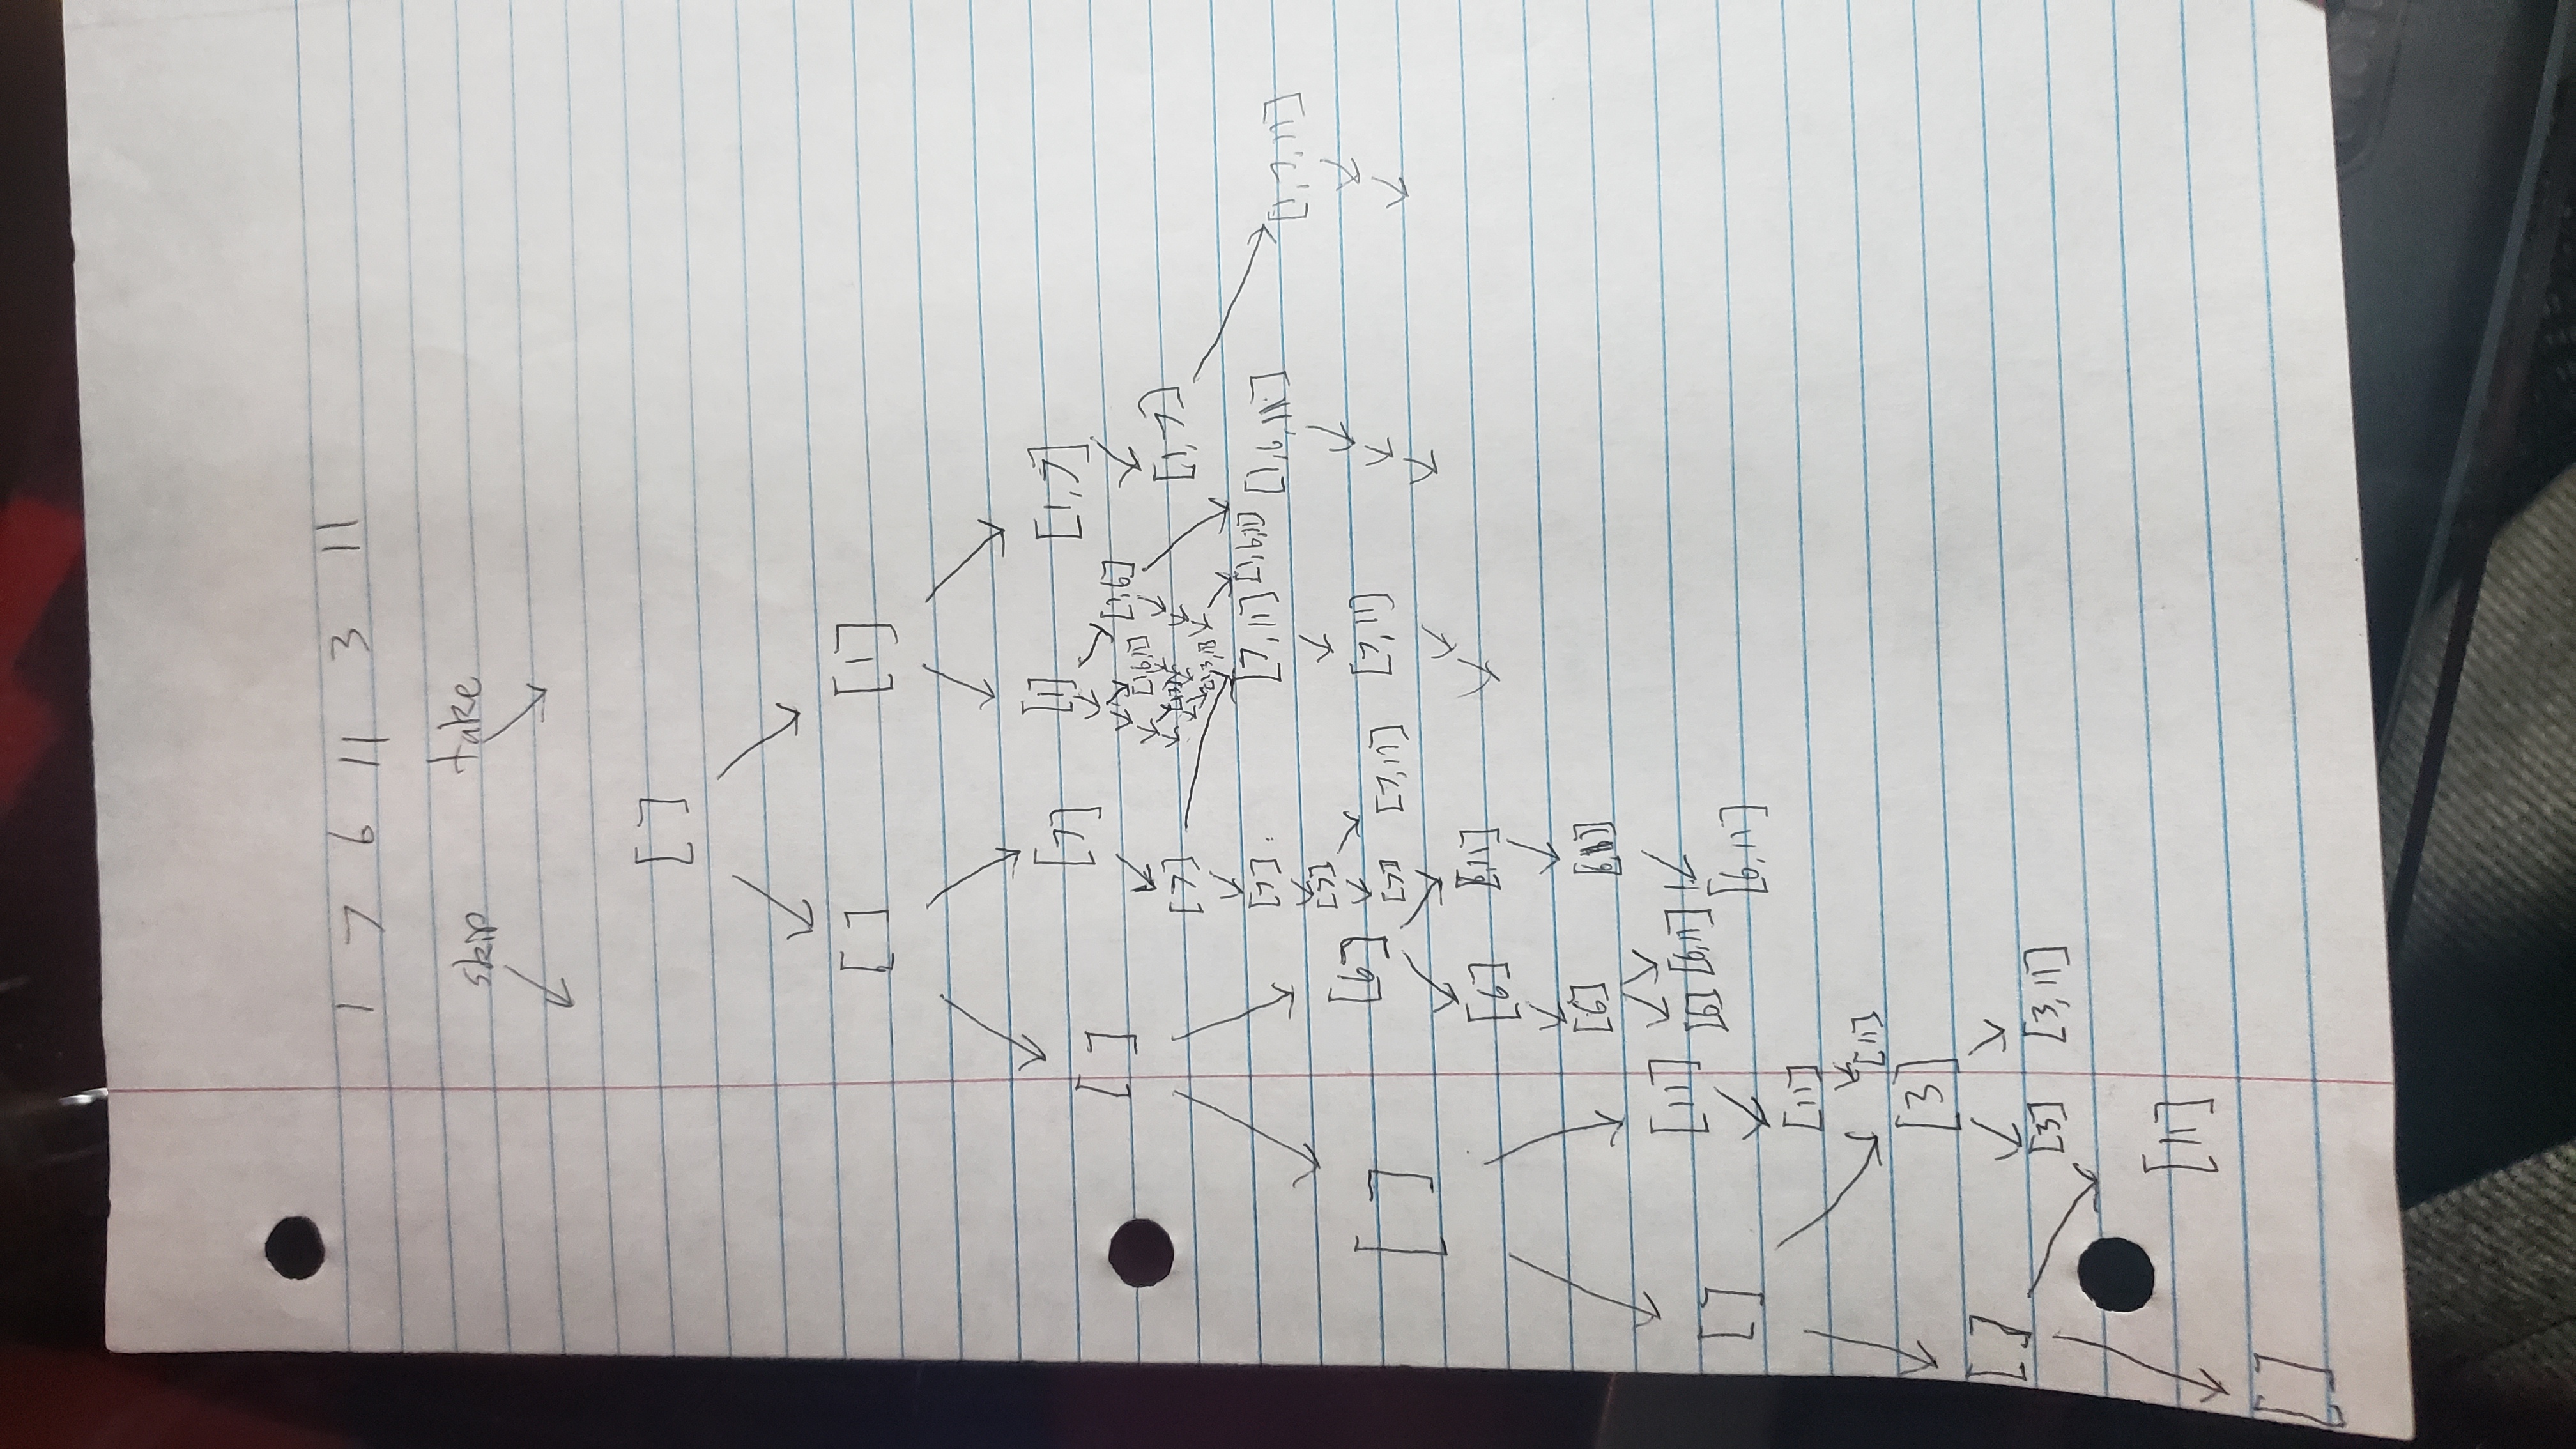 1 7 6 11 3 11
skip take
[ ]
[ ] [1]
[ ] [7] [1] [1,7]
[1,6]
[1,6,11]
[7] [1,7]
[7] [7,11] [1,6,11] [1,6,11] [1,7,11]
[7]
[ ] [6] [7] [7,11] [7,11]
[6] [6,11]
[6] [6,11]
[ ] [11] [6] [6,11] [6,11]
[11]
[11]
[3]
[ ] [3] [3,11]
[11]
[ ]